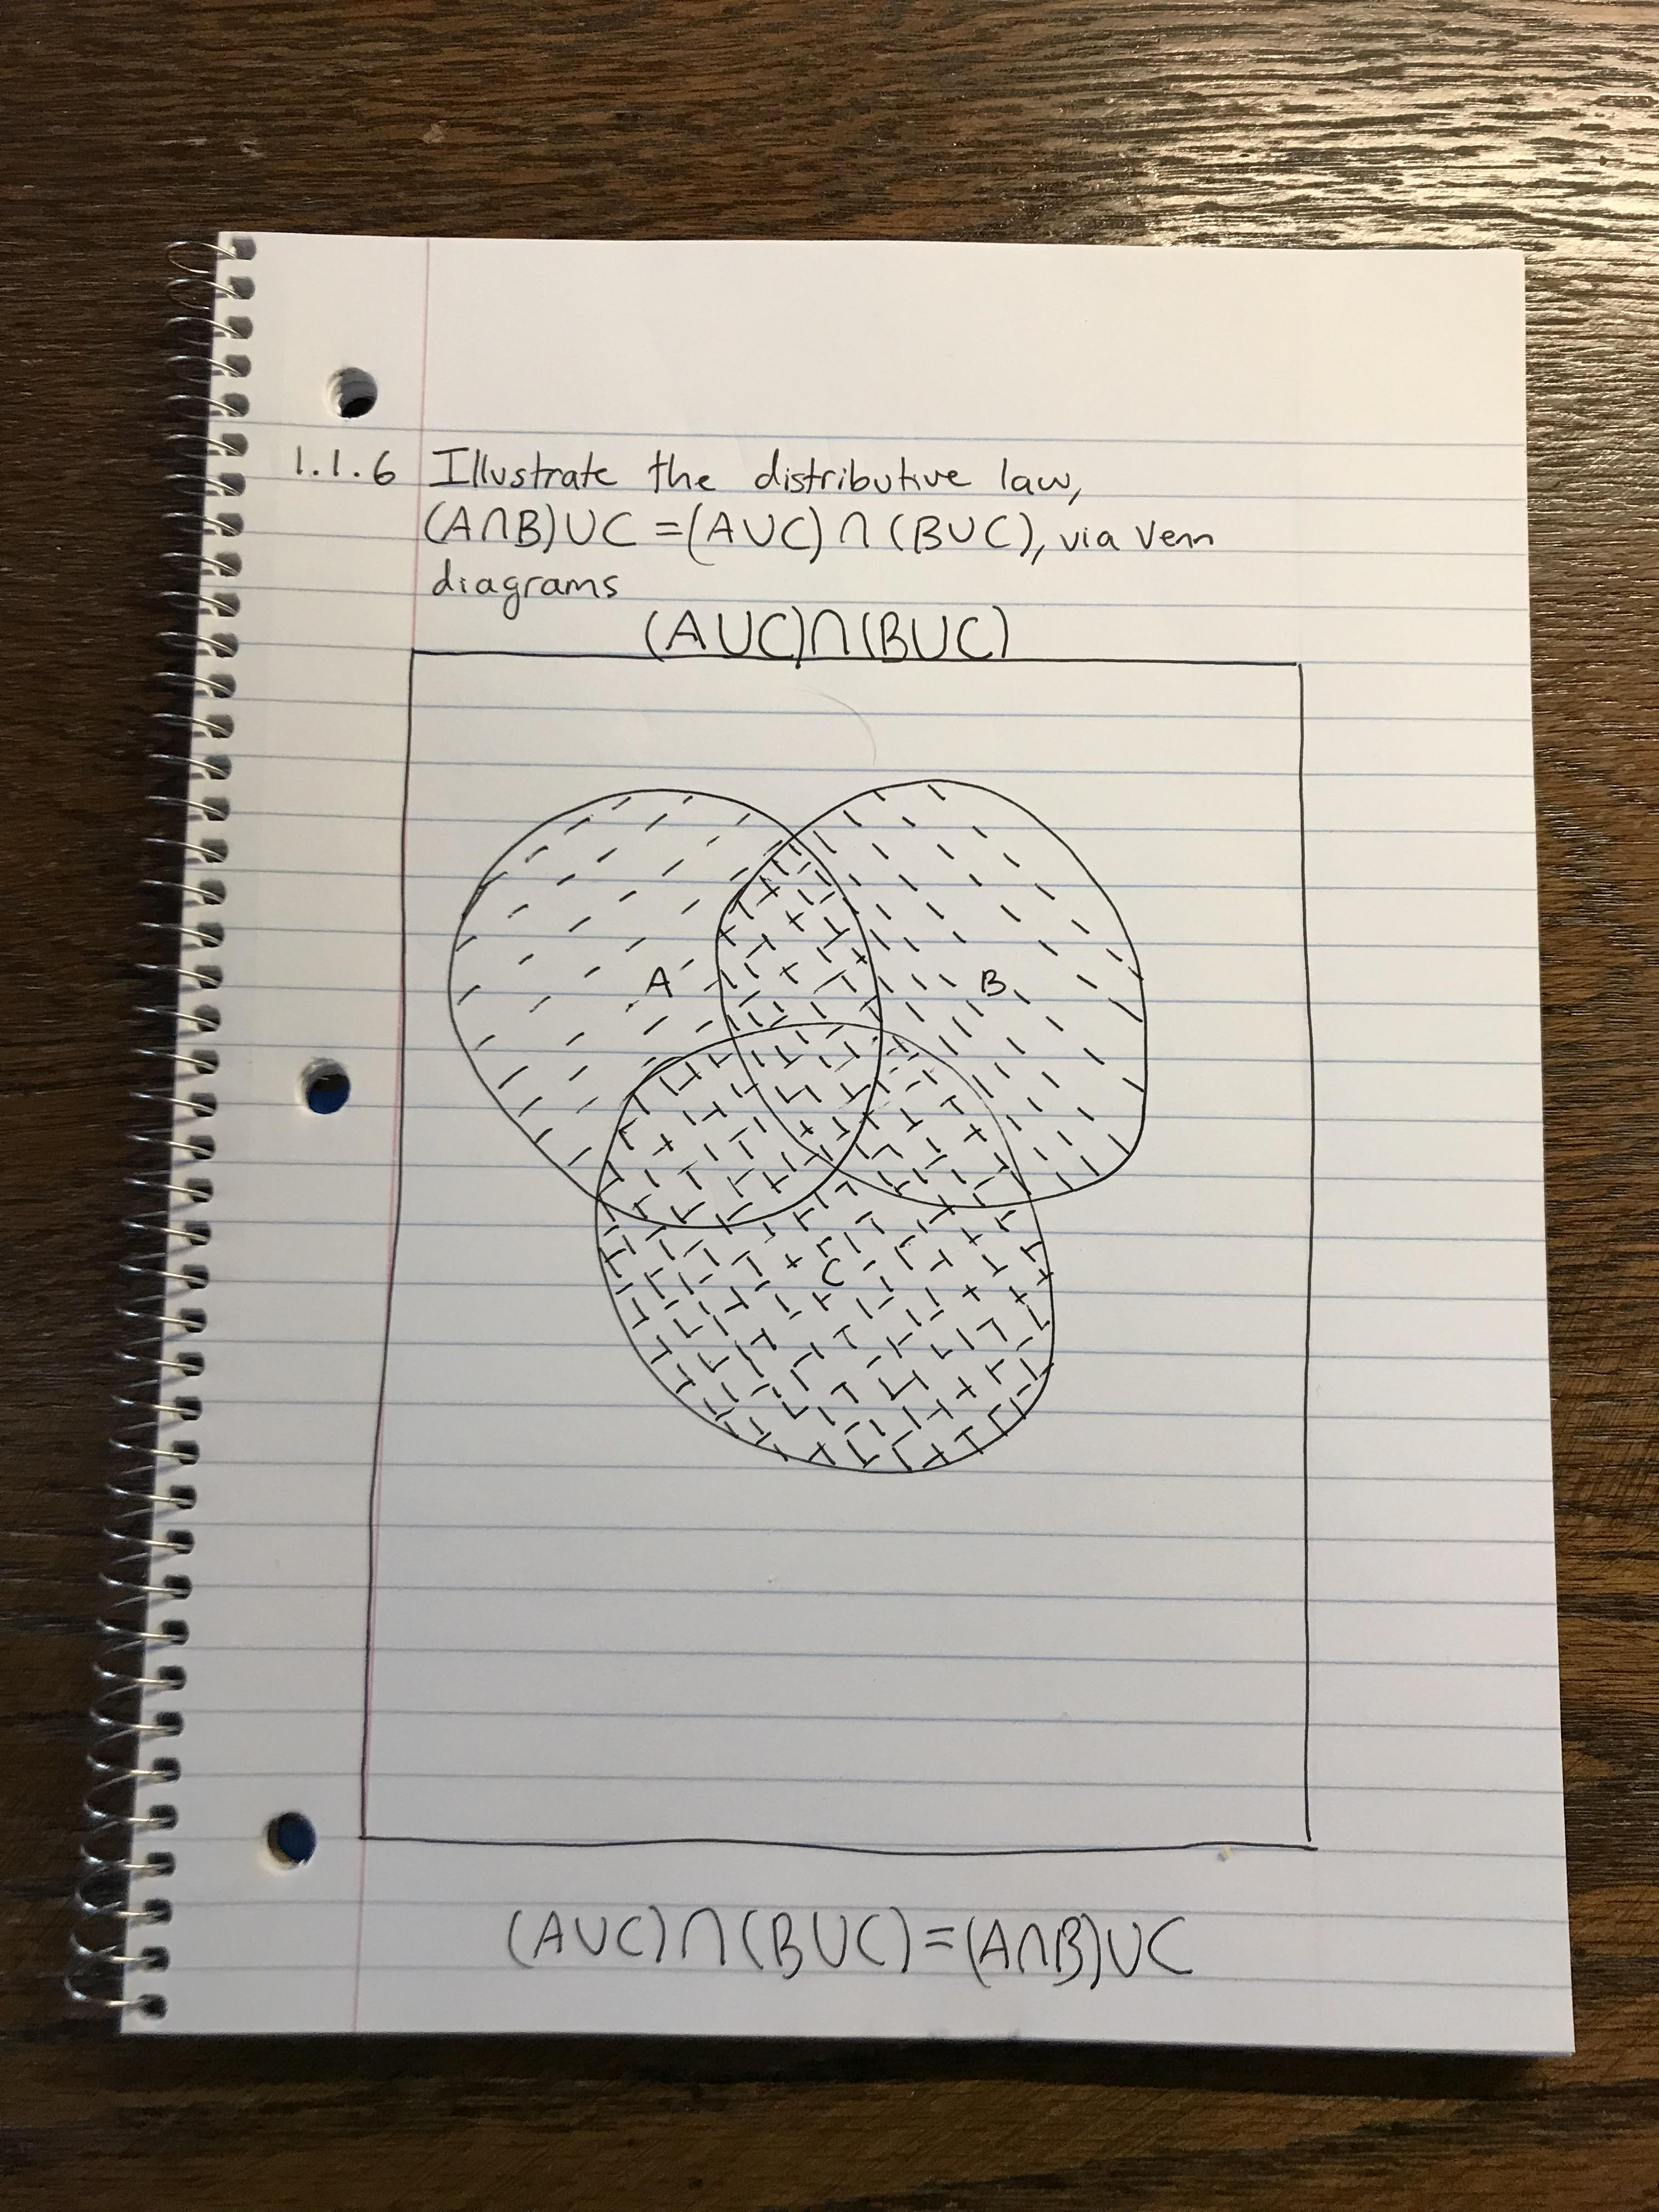 1.1.6 Illustrate the distributive law,
(A∩B)∪C =(A∪C)∩(B∪C), via Venn
diagrams
(A∪C)∩(B∪C)
A B
C
(A∪C)∩(B∪C)=(A∩B)∪C